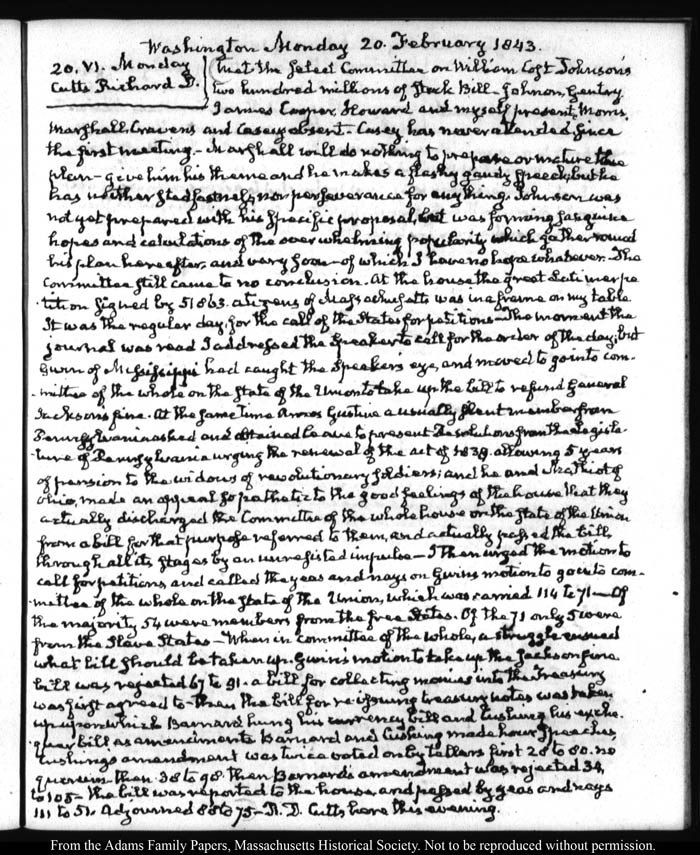 Washington Monday 20. February 1843.
20. VI. Monday
Cutts Richard D.
Met the Select Committee on William Cost Johnson's
two hundred millions of Stock Bill - Johnson, Gentry
James Cooper, Howard and myself present, Morris,
Marshall, Cravens and Casey absent - Casey has never attended since
the first meeting. - Marshall will do nothing to prepare or mature the
plan - give him his theme and he makes a flashy gaudy speech, but he
has neither stedfastness nor perseverance for any thing. Johnson was
not yet prepared with his specific proposal, but was forming sanguine
hopes and calculations of the overwhelming popularity which gather round
his plan hereafter, and very soon - of which I have no hope whatever. The
Committee still came to no conclusion. At the house the great Latimer pe
tition signed by 51863. citizens of Massachusetts was in a frame on my table
It was the regular day, for the call of the States for petitions - The moment the
journal was read I addressed the Speaker to call for the order of the day; but
Gwin of Mississippi had caught the Speaker's eye, and moved to go into com-
mittee of the whole on the state of the Union to take up the bill to refund General
Jackson's fine. At the same time Amos Gustine a usually silent member from
Pennsylvania asked and obtained leave to present Resolutions from the Legisla-
ture of Pennsylvania urging the renewal of the act of 1838. allowing 5 years
of pension to the widows of revolutionary soldiers; and he and
Ohio, made an appeal so pathetic to the good feelings of the house that they
actually discharged the Committee of the whole house on the State of the Union
from a bill for that purpose referred to them, and actually passed the bill,
through all its stages by an unresisted impulse - I then urged the motion to
call for petitions, and called the yeas and nays on Gwin's motion to go into com-
mittee of the whole on the state of the Union, which was carried 114 to 71 - Of
the majority, 54 were members from the free States. Of the 71 only 5 were
from the Slave States - When in committee of the whole, a struggle ensued
what bill should be taken up. Gwin's motion to take up the Jackson fine
bill was rejected 67 to 91. a bill for collecting monies into the Treasury
was first agreed to - then the bill for re-issuing treasury notes was taken
up upon which Barnard hung his currency bill and Cushing his exche.
quer bill as amendments Barnard and Cushing made hour speeches
Cushing's amendment was twice voted on by tellers first 28 to 80. no
quorum then 38 to 98. then Barnard's amendment was rejected 34,
to 108 - the bill was reported to the house, and passed by yeas and nays
111 to 51. Adjourned 88 to 75 - R. D. Cutts here this evening.
From the Adams Family Papers, Massachusetts Historical Society. Not to be reproduced without permission.